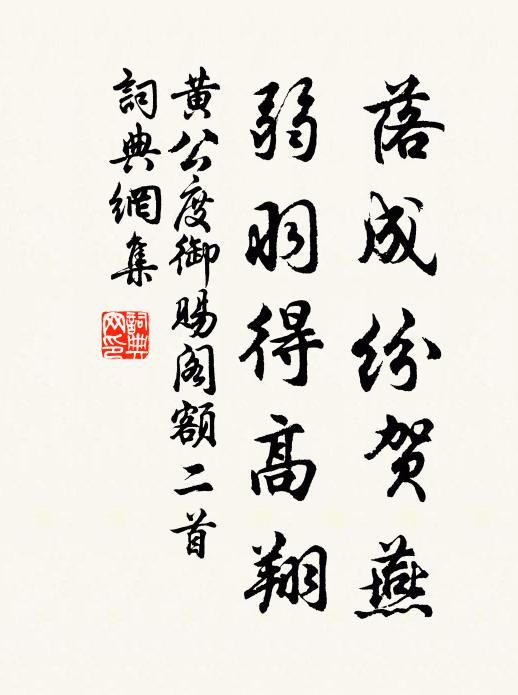 落成紛贺燕
弱羽得高翔
黃公度御賜阁額二首
詞典網集
詞典
网印